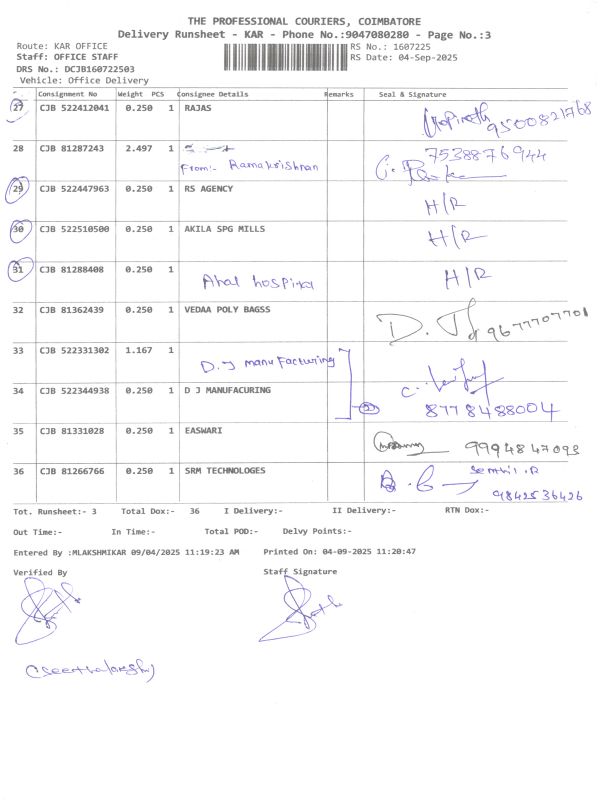 THE PROFESSIONAL COURIERS, COIMBATORE
Delivery Runsheet - KAR - Phone No.:9047080280 - Page No.:3
Route: KAR OFFICE RS No.: 1607225
Staff: OFFICE STAFF RS Date: 04-Sep-2025
DRS No.: DCJB160722503
Vehicle: Office Delivery
Consignment No Weight PCS Consignee Details Remarks Seal & Signature
27 CJB 522412041 0.250 1 RAJAS 9500821768
28 CJB 81287243 2.497 1 7538876944
From:- Ramakrishnan
29 CJB 522447963 0.250 1 RS AGENCY H/R
30 CJB 522510500 0.250 1 AKILA SPG MILLS H/R
31 CJB 81288408 0.250 1 H/R
hospital
32 CJB 81362439 0.250 1 VEDAA POLY BAGSS 9677707701
33 CJB 522331302 1.167 1
D.J manufacturing
34 CJB 522344938 0.250 1 D J MANUFACURING
8778488004
35 CJB 81331028 0.250 1 EASWARI 9994847093
36 CJB 81266766 0.250 1 SRM TECHNOLOGES Senthil.R
9842536426
Tot. Runsheet:- 3 Total Dox:- 36 I Delivery:- II Delivery:- RTN Dox:-
Out Time:- In Time:- Total POD:- Delvy Points:-
Entered By :MLAKSHMIKAR 09/04/2025 11:19:23 AM Printed On: 04-09-2025 11:20:47
Verified By Staff Signature